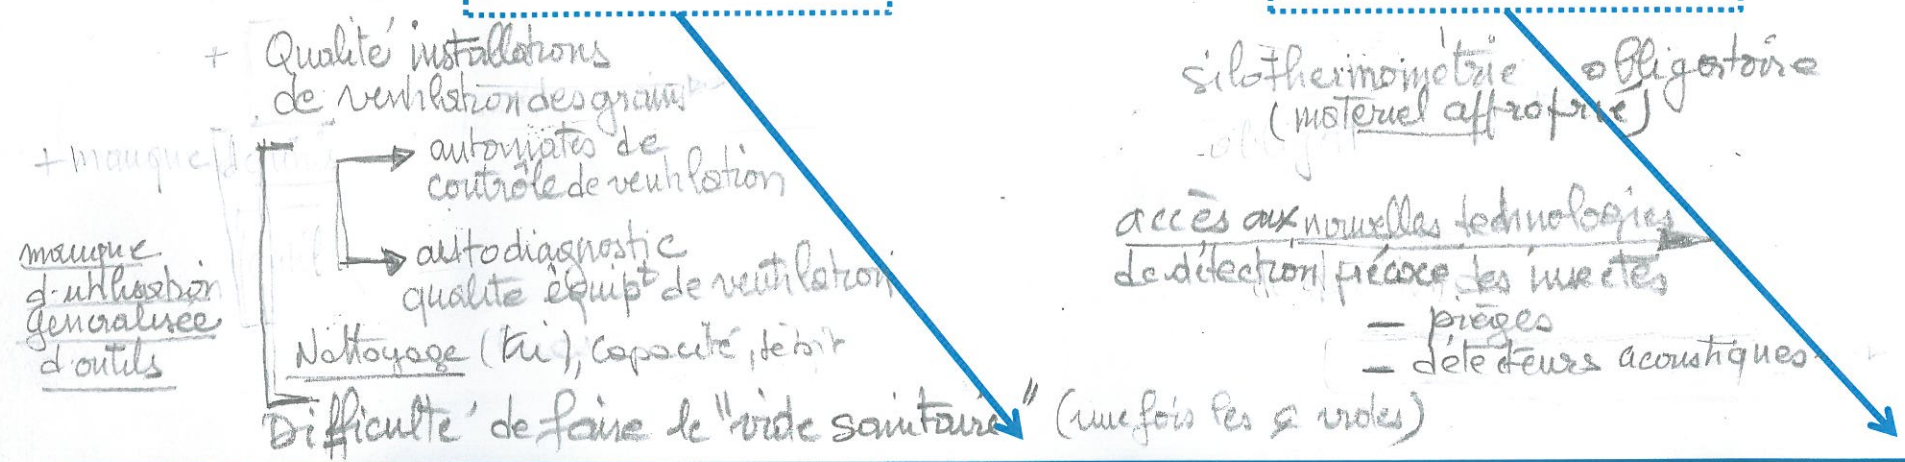 + Qualité installations
de ventilation des grains
+ manque
automates de
contrôle de ventilation
autodiagnostic
qualité équipt de ventilation
manque
d'utilisation
généralisée
d'outils
Nettoyage (tri), capacité, débit
Difficulté de faire le "vide sanitaire" (une fois les vides)
silothermométrie obligatoire
(matériel approprié)
accès aux nouvelles technologies
de détection précoce des insectes
– pièges
– détecteurs acoustiques